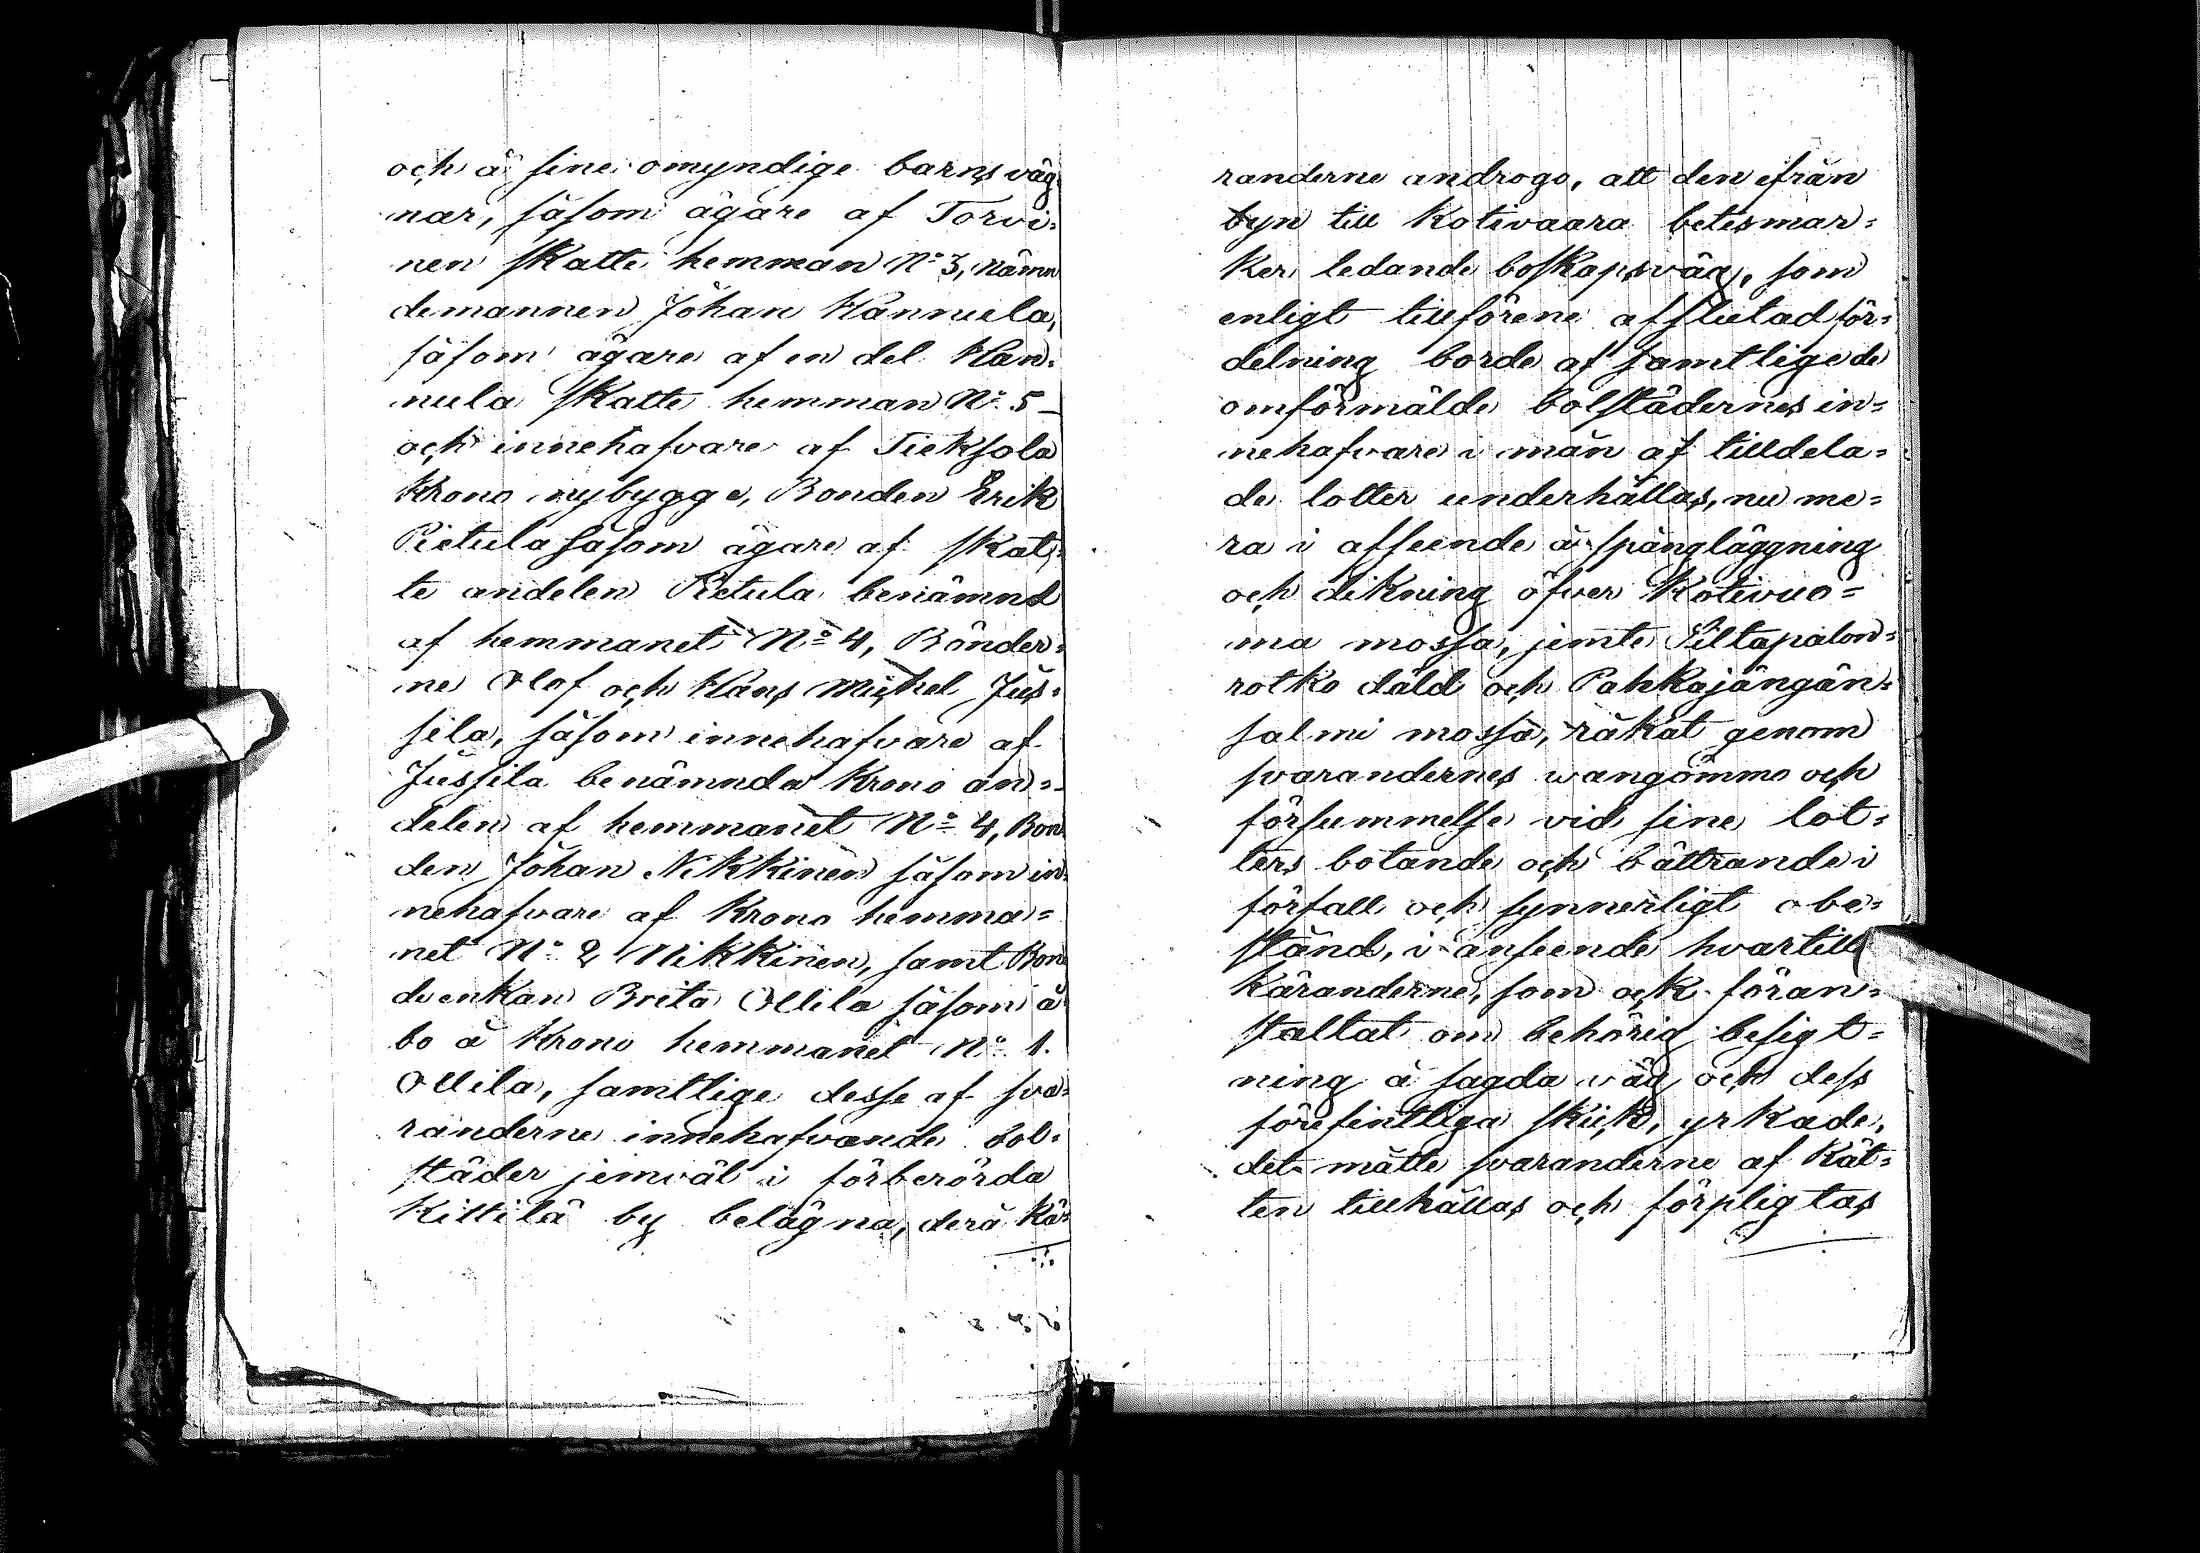 och å sine omyndige barns väg
nar, såsom ägare af Torvi-
nen skatte hemman N:o 3, näm
demannen Johan Hannula,
såsom ägare af en del Han-
nula skatte hemman N:o 5 –
och innehafvare af Tieksola
Krono nybygge, Bonden Erik
Pietula såsom ägare af skat-
te andelen Pietula benämnd
af hemmanet N:o 4, Bönder-
ne Olof och Hans Michel Jus-
sila, såsom innehafvare af
Jussila benämnda Krono an=
delen af hemmanet N:o 4, Bon
den Johan Nikkinen såsom in-
nehafvare af Krono hemma=
net N:o 2 Nikkinen, samt Bon
deenkan Brita Ollila såsom å
bo å Krono hemmanet N:o 1.
Ollila, samtlige desse af sva-
randerne innehafvande bol-
städer jemväl i förberörda
Kittilä by belägna, derå Kä-
randerne androgo, att den ifrån
byn till Kotivaara betesmar=
ker ledande boskapsväg, som
enligt tillförene afslutad för-
delning borde af samtlige de
omförmälde bolstädernes in=
nehafvare i mån af tilldela=
de lotter underhållas, nu me=
ra i afseende å spångläggning
och dikning öfver Kotivuo=
ma mossa, jemte Siltapalon=
rotko däld och Pahkajängän=
salmi mossa, råkat genom
svarandernes wangömmo och
försummelse vid sine lot=
ters botande och bättrande i
förfall och synnerligt obe=
stånd, i anseende hvartill
Käranderne, som ock föran=
staltat om behörig besigt=
ning å sagda väg och dess
förefintliga skick, yrkade,
det måtte svaranderne af Rät=
ten tillhållas och förpligtas